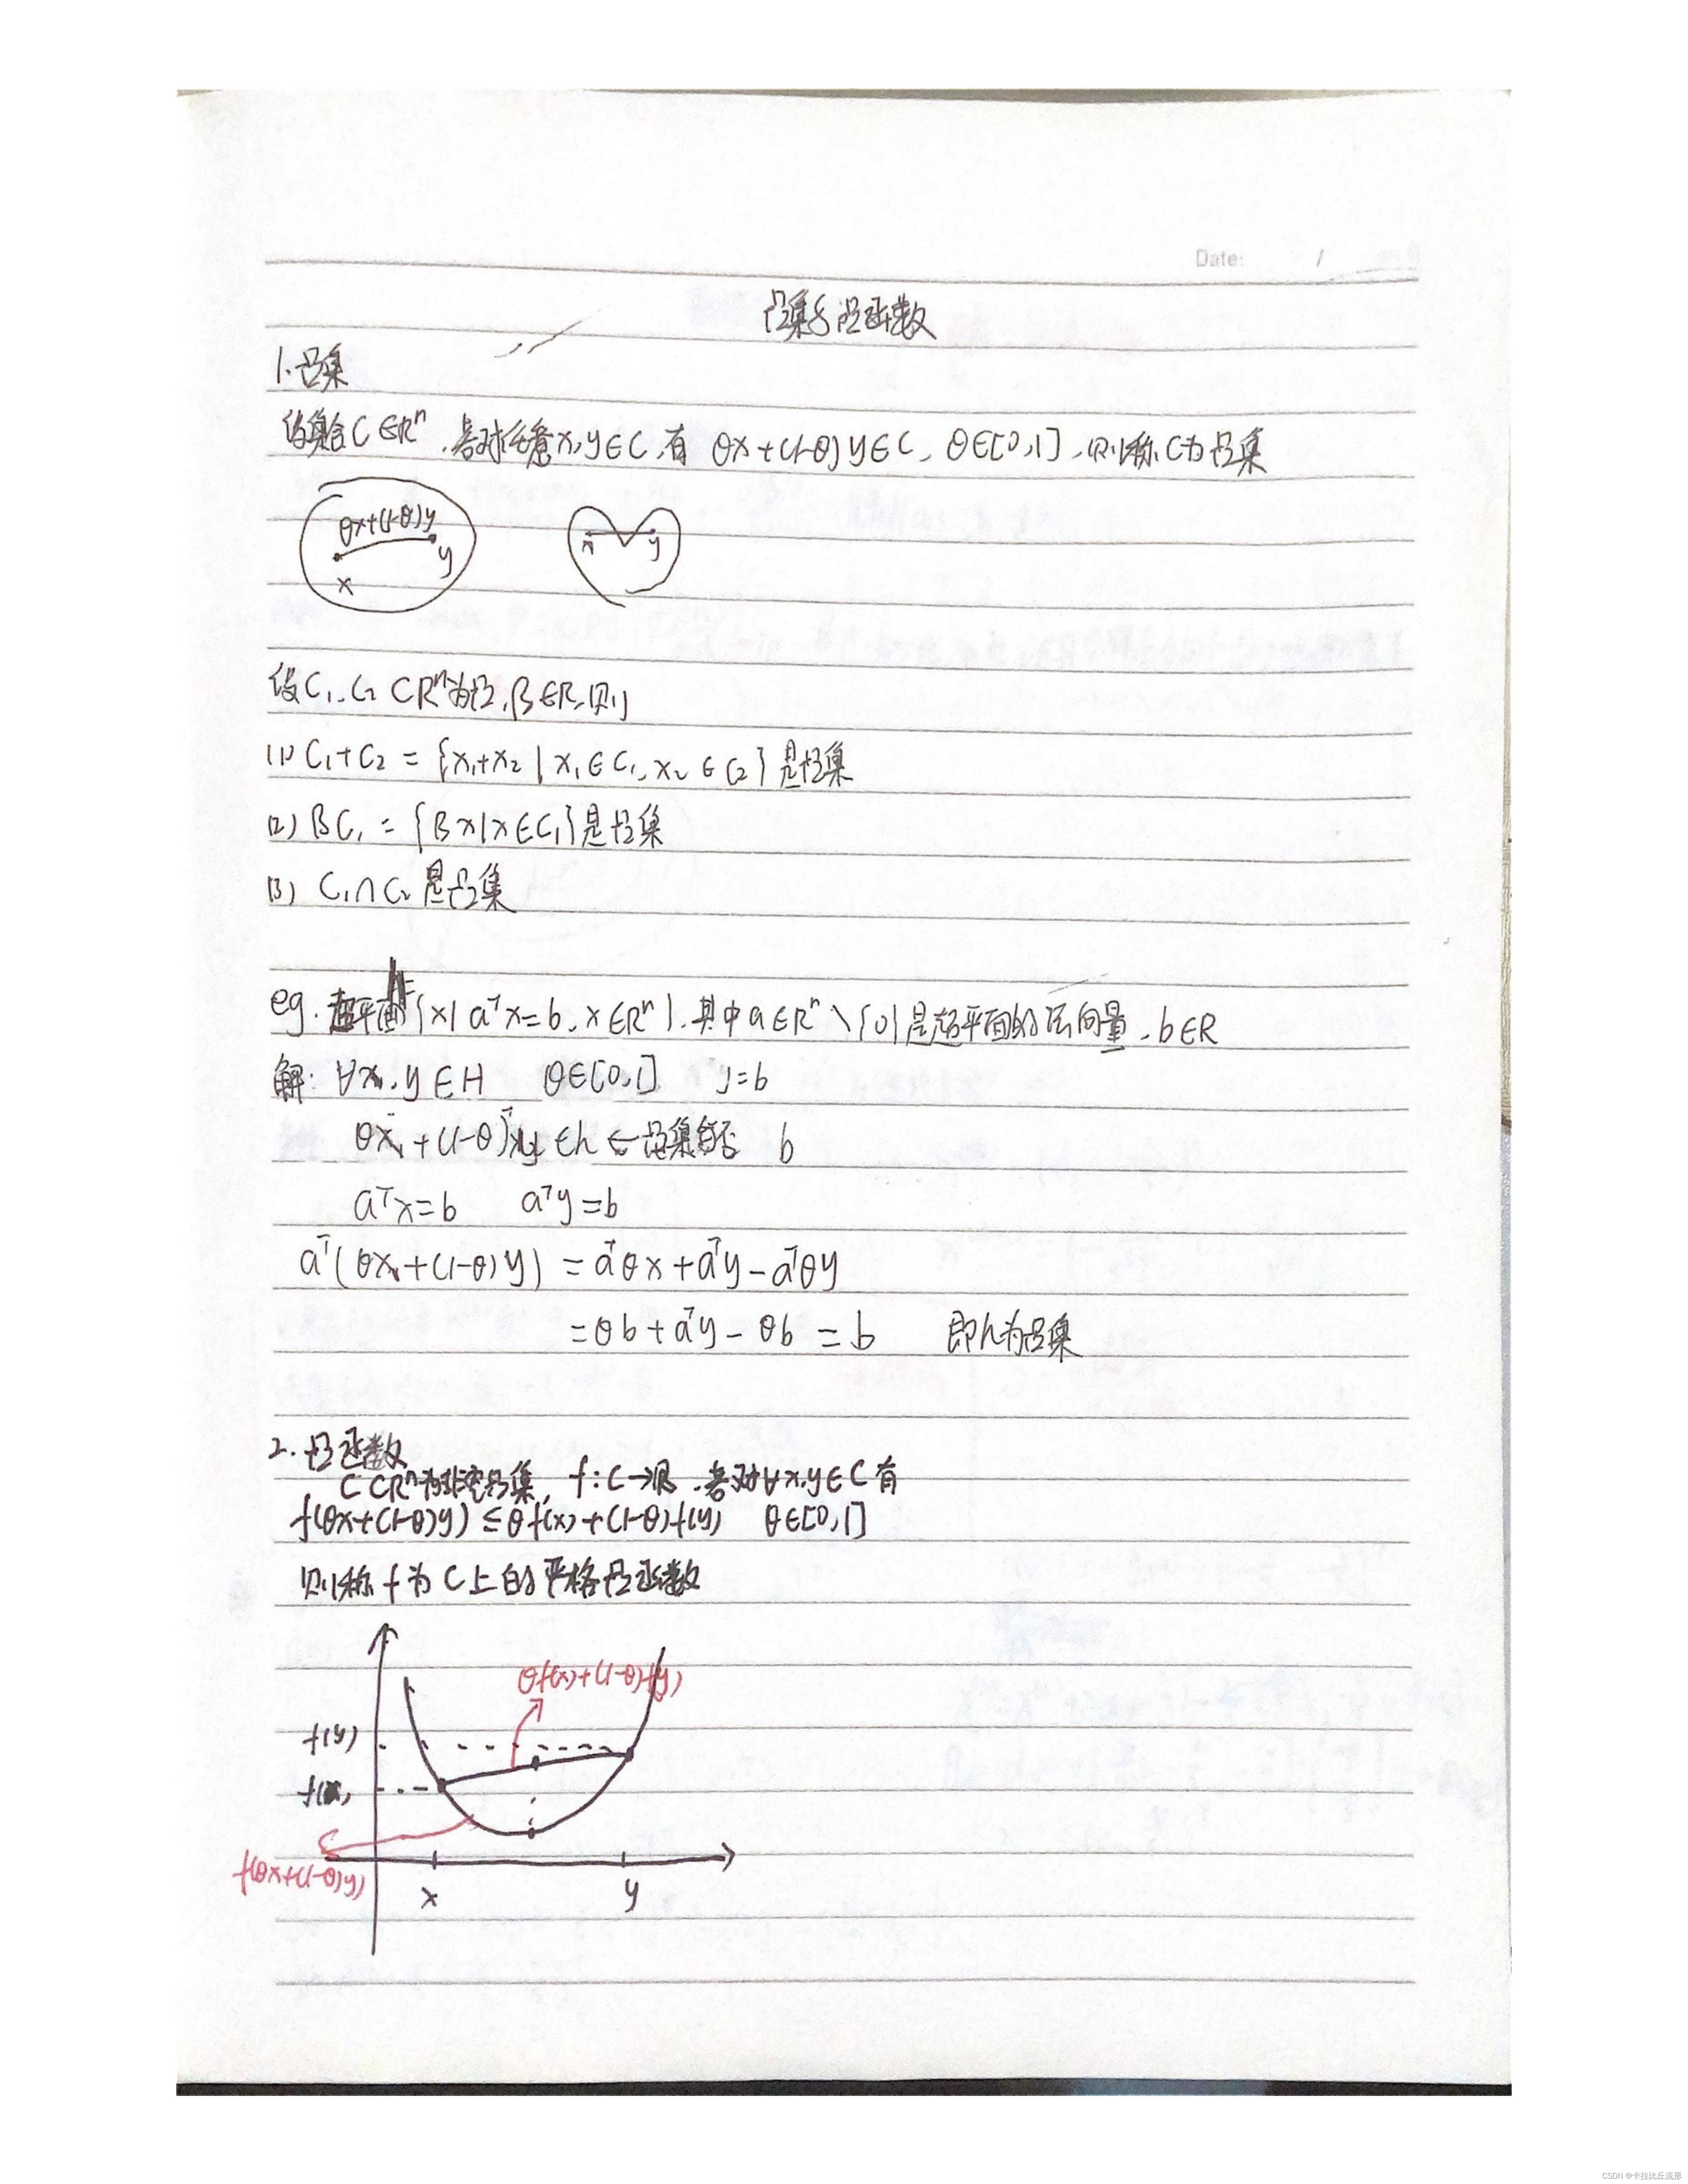 Date: /
凸集与凸函数
1.凸集
设集合C∈Rⁿ,若对任意x,y∈C,有 θx+(1-θ)y∈C, θ∈[0,1],则称C为凸集
θx+(1-θ)y
x y
x y
设C₁,C₂⊂Rⁿ为凸,β∈R,则
(1) C₁+C₂ = {x₁+x₂ | x₁∈C₁, x₂∈C₂} 是凸集
(2) βC₁ = {βx|x∈C₁}是凸集
(3) C₁∩C₂ 是凸集
eg. 超平面H {x| aᵀx=b, x∈Rⁿ}, 其中a∈Rⁿ\{0}是超平面的法向量, b∈R
解: ∀x, y∈H θ∈[0,1] y=b
θx+(1-θ)y∈h ← 凸集 b
aᵀx=b aᵀy=b
aᵀ(θx+(1-θ)y) = aᵀθx+aᵀy-aᵀθy
=θb+aᵀy-θb=b 即h为凸集
2. 凸函数
C⊂Rⁿ为非空凸集, f:C→R,若对∀x,y∈C有
f(θx+(1-θ)y)≤θf(x)+(1-θ)f(y) θ∈[0,1]
则称f为C上的严格凸函数
θf(x)+(1-θ)f(y)
f(y)
f(x)
f(θx+(1-θ)y)
x y
CSDN @卡拉比丘流形